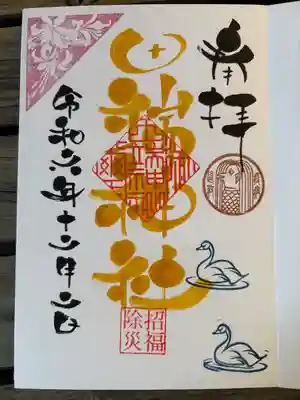 奉拝
田端神社
招福
除災
令和六年十二月二日